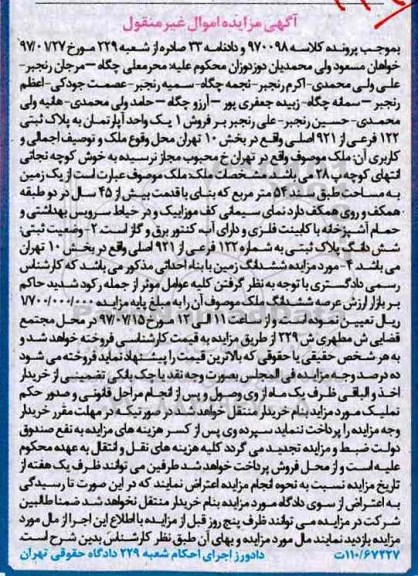 آگهی مزایده اموال غیر منقول
بموجب پرونده کلاسه ۹۷۰۰۹۸ و دادنامه ۳۳ صادره از شعبه ۲۲۹ مورخ ۹۷/۰۱/۲۷
خواهان مسعود ولی محمدیان دوزدوزان محکوم علیه: محرمعلی چگاه – مرجان رنجبر-
علی ولی محمدی- اکرم رنجبر- نجمه چگاه- سمیه رنجبر- عصمت جودکی- اعظم
رنجبر – سمانه چگاه- زبیده جعفری پور – آرزو چگاه – حامد ولی محمدی- هانیه ولی
محمدی- حسین رنجبر- علی رنجبر بر فروش ۱ یک واحد آپارتمان به پلاک ثبتی
۱۲۲ فرعی از ۹۲۱ اصلی واقع در بخش ۱۰ تهران محل وقوع ملک و توصیف اجمالی و
کاربری آن: ملک موصوف واقع در تهران خ محبوب مجاز نرسیده به خوش کوچه نجاتی
انتهای کوچه پ ۲۸ می باشد. مشخصات ملک: ملک موصوف عبارت است از یک زمین
به مساحت طبق سند ۵۴ متر مربع که بنای با قدمت بیش از ۴۵ سال در دو طبقه
همکف و روی همکف دارد نمای سیمانی کف موزاییک و در حیاط سرویس بهداشتی و
حمام آشپزخانه با کابینت فلزی و دارای آب، کنتور برق و گاز است. ۲- وضعیت ثبتی:
شش دانگ پلاک ثبتی به شماره ۱۲۲ فرعی از ۹۲۱ اصلی واقع در بخش ۱۰ تهران
می باشد ۳- مورد مزایده ششدانگ زمین با بناه احداثی مذکور می باشد که کارشناس
رسمی دادگستری با توجه به نظر گرفتن کلیه عوامل موثر از جمله رکود شدید حاکم
بر بازار ارزش عرصه ششدانگ ملک موصوف آن را به مبلغ پایه مزایده ۱/۷۰۰/۰۰۰/۰۰۰
ریال تعیین نموده است و از ساعت ۱۱ الی ۱۲ مورخ ۹۷/۰۷/۱۵ در محل مجتمع
قضایی ش مطهری ش ۲۲۹ از طریق مزایده به قیمت کارشناسی فروخته خواهد شد و
به هر شخص حقیقی یا حقوقی که بالاترین قیمت را پیشنهاد نماید فروخته می شود
ده درصد وجه مزایده فی المجلس بصورت وجه نقد یا چک بانکی تضمینی از خریدار
اخذ و الباقی ظرف یک ماه از وی وصول و پس از انجام مراحل قانونی و صدور حکم
تملیک مورد مزایده بنام خریدار منتقل خواهد شد در صورتیکه در مهلت مقرر خریدار
وجه مزایده را پرداخت ننماید سپرده وی پس از کسر هزینه های مزایده به نفع صندوق
دولت ضبط و مزایده تجدید می گردد کلیه هزینه های نقل و انتقال به عهده محکوم
علیه است و از محل فروش پرداخت خواهد شد طرفین می توانند ظرف یک هفته از
تاریخ مزایده نسبت به نحوه انجام مزایده اعتراض نمایند که در این صورت تا رسیدگی
به اعتراض از سوی دادگاه مورد مزایده بنام خریدار منتقل نخواهد شد ضمنا طالبین
شرکت در مزایده می توانند ظرف پنج روز قبل از مزایده با اطلاع این اجرا از مال مورد
مزایده بازدید نمایند مال مورد مزایده و بهای آن طبق نظر کارشناس بدین شرح است.
۱۱۰/۶۷۲۲۷ت دادورز اجرای احکام شعبه ۲۲۹ دادگاه حقوقی تهران